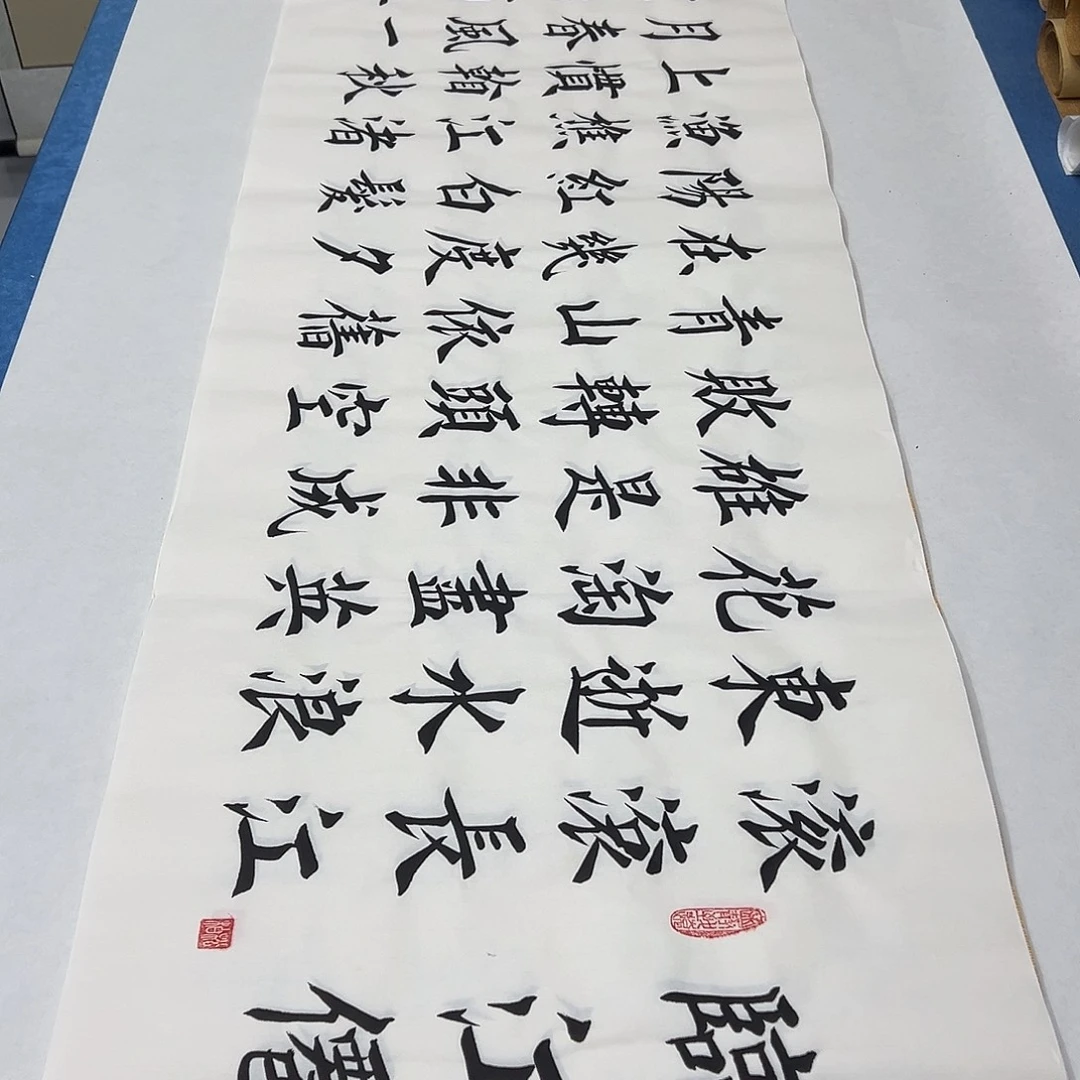 臨江僊
滾滾長江
東逝水浪
花淘盡英
雄是非成
敗轉頭空
青山依舊
在幾度夕
陽紅白髮
漁樵江渚
上慣看秋
月春風一